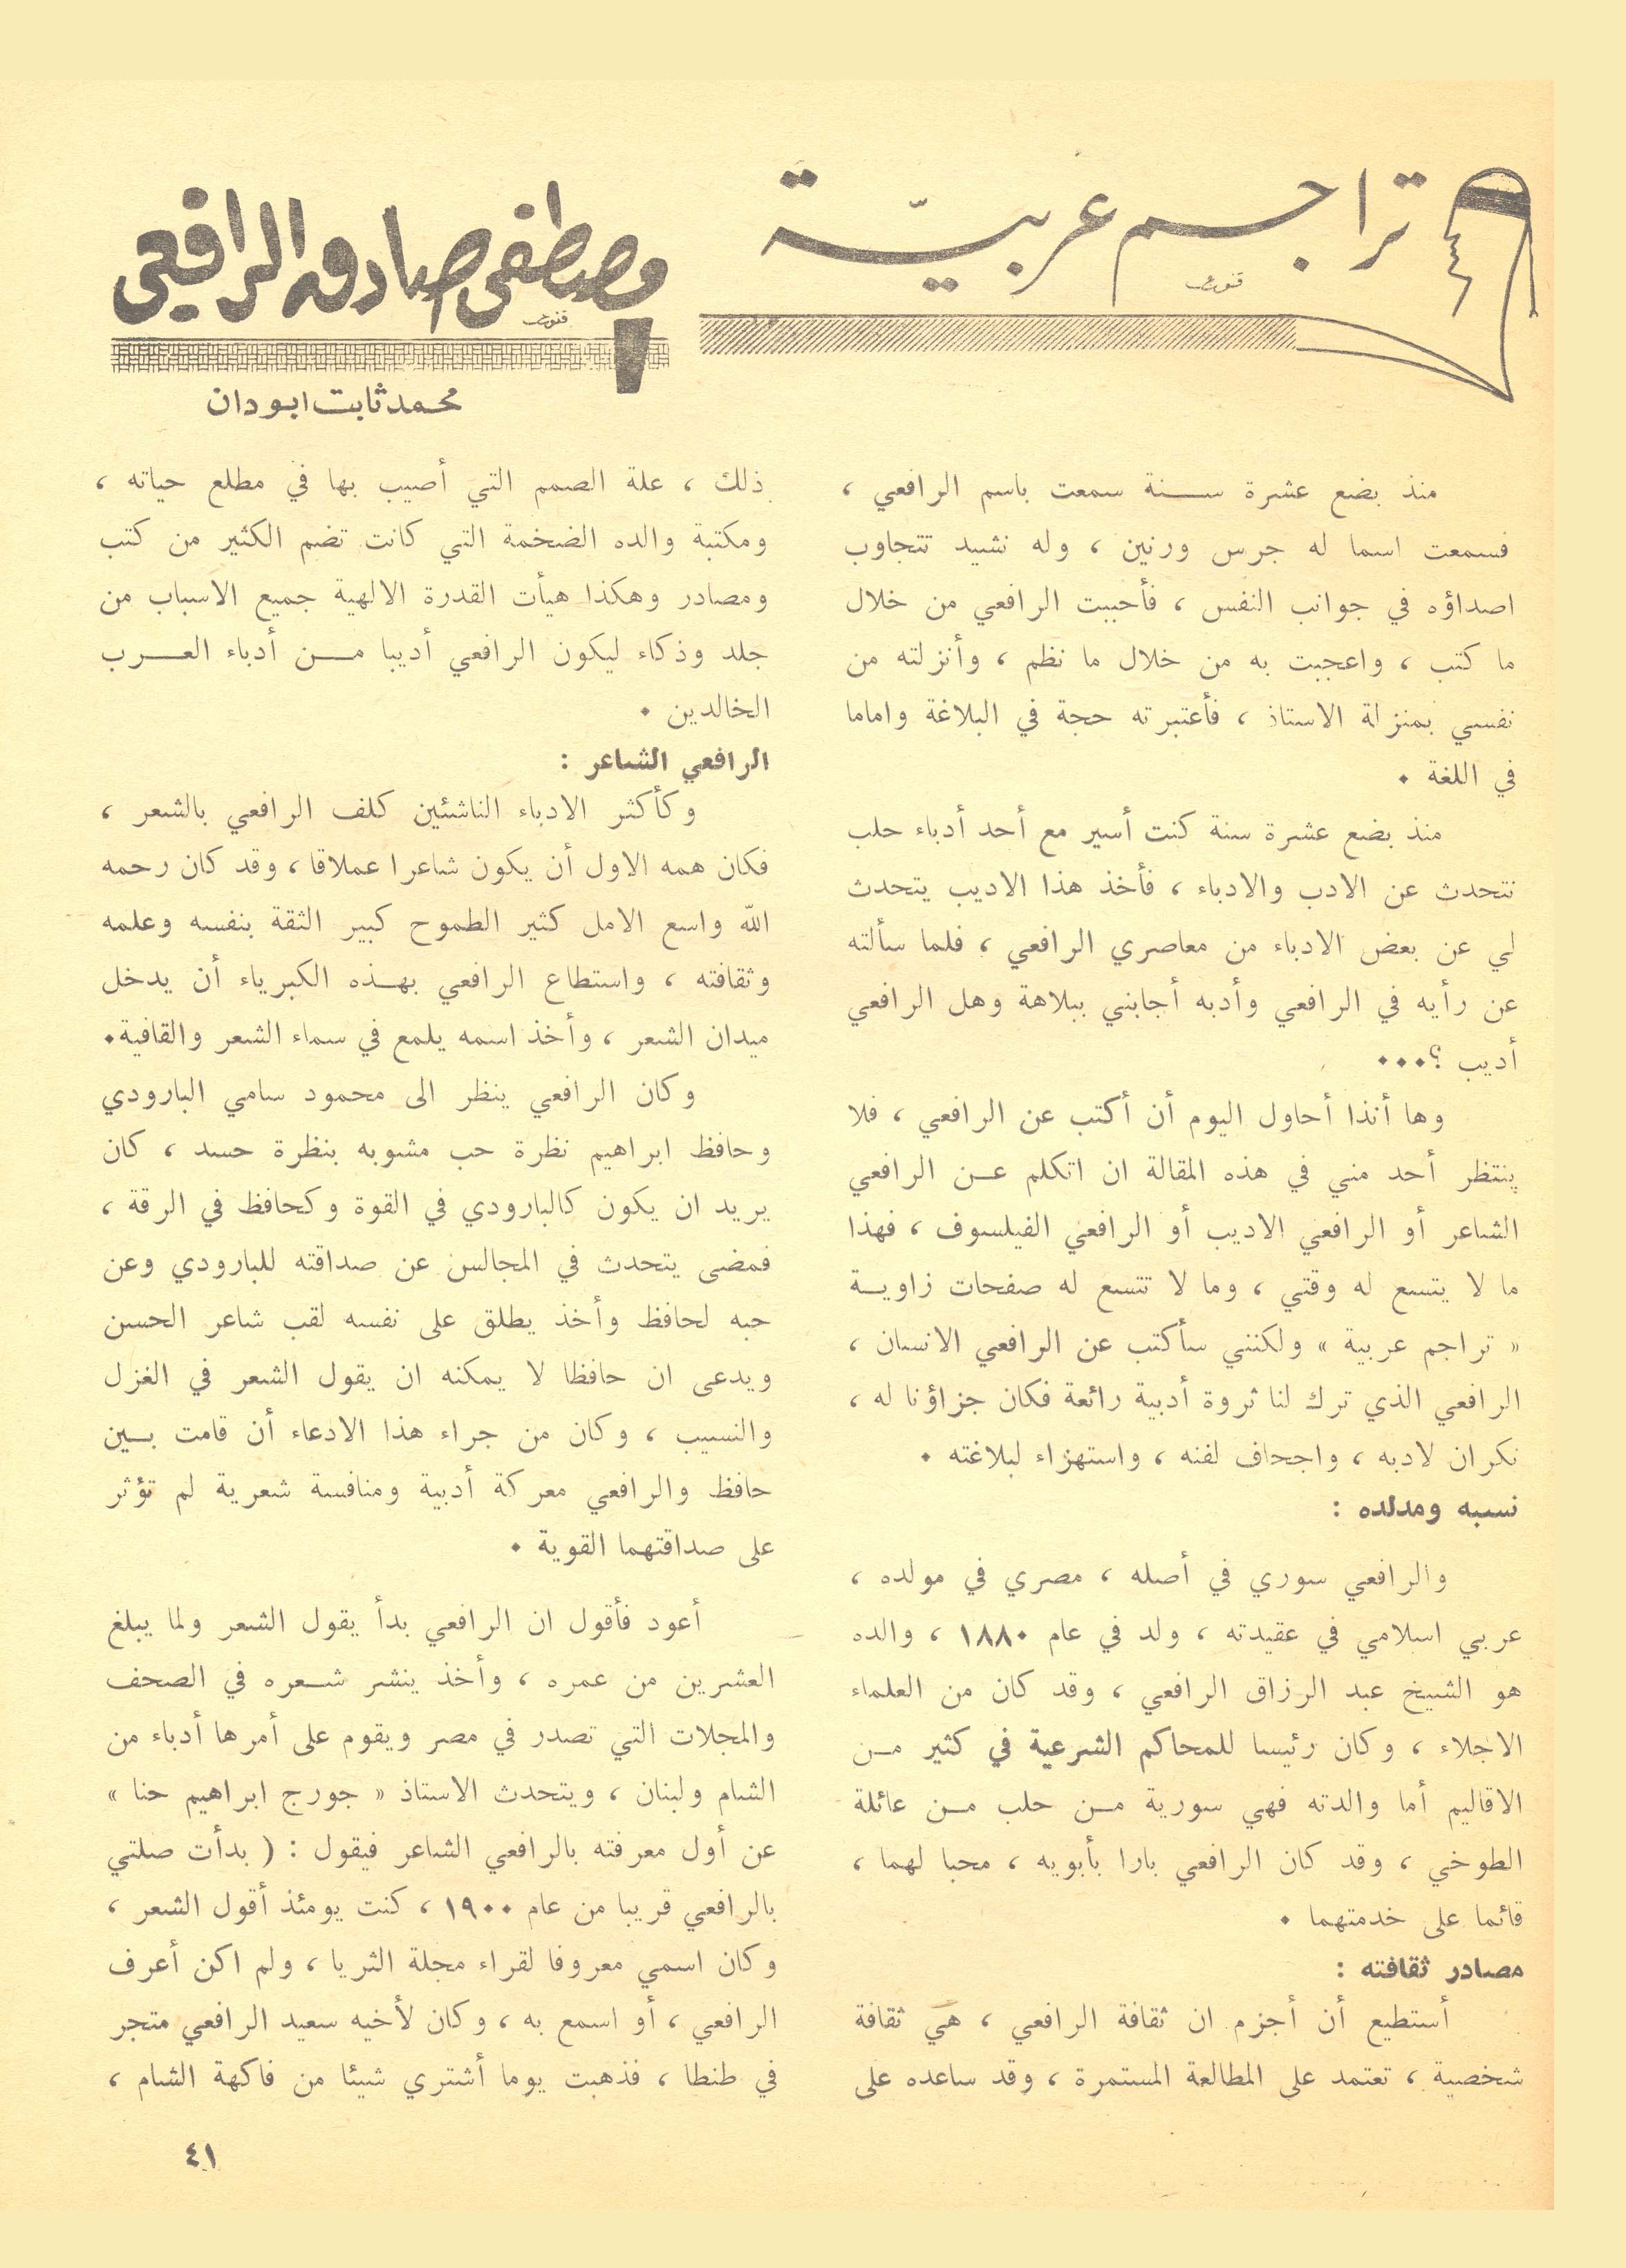 تراجم عربيّة
مصطفى صادق الرافعي
محمد ثابت ابودان
منذ بضع عشرة سنة سمعت باسم الرافعي ،
فسمعت اسما له جرس ورنين ، وله نشيد تتجاوب
اصداؤه في جوانب النفس ، فأحببت الرافعي من خلال
ما كتب ، واعجبت به من خلال ما نظم ، وأنزلته من
نفسي بمنزلة الاستاذ ، فأعتبرته حجة في البلاغة واماما
في اللغة .
منذ بضع عشرة سنة كنت أسير مع أحد أدباء حلب
نتحدث عن الادب والادباء ، فأخذ هذا الاديب يتحدث
لي عن بعض الادباء من معاصري الرافعي ، فلما سألته
عن رأيه في الرافعي وأدبه أجابني ببلاهة وهل الرافعي
أديب ؟...
وها أنذا أحاول اليوم أن أكتب عن الرافعي ، فلا
ينتظر أحد مني في هذه المقالة ان اتكلم عن الرافعي
الشاعر أو الرافعي الاديب أو الرافعي الفيلسوف ، فهذا
ما لا يتسع له وقتي ، وما لا تتسع له صفحات زاوية
« تراجم عربية » ولكنني سأكتب عن الرافعي الانسان ،
الرافعي الذي ترك لنا ثروة أدبية رائعة فكان جزاؤنا له ،
نكران لادبه ، واجحاف لفنه ، واستهزاء لبلاغته .
نسبه ومدلده :
والرافعي سوري في أصله ، مصري في مولده ،
عربي اسلامي في عقيدته ، ولد في عام ١٨٨٠ ، والده
هو الشيخ عبد الرزاق الرافعي ، وقد كان من العلماء
الاجلاء ، وكان رئيسا للمحاكم الشرعية في كثير من
الاقاليم أما والدته فهي سورية من حلب من عائلة
الطوخي ، وقد كان الرافعي بارا بأبويه ، محبا لهما ،
قائما على خدمتهما .
مصادر ثقافته :
أستطيع أن أجزم ان ثقافة الرافعي ، هي ثقافة
شخصية ، تعتمد على المطالعة المستمرة ، وقد ساعده على
ذلك ، علة الصمم التي أصيب بها في مطلع حياته ،
ومكتبة والده الضخمة التي كانت تضم الكثير من كتب
ومصادر وهكذا هيأت القدرة الالهية جميع الاسباب من
جلد وذكاء ليكون الرافعي أديبا من أدباء العرب
الخالدين .
الرافعي الشاعر :
وكأكثر الادباء الناشئين كلف الرافعي بالشعر ،
فكان همه الاول أن يكون شاعرا عملاقا ، وقد كان رحمه
الله واسع الامل كثير الطموح كبير الثقة بنفسه وعلمه
وثقافته ، واستطاع الرافعي بهذه الكبرياء أن يدخل
ميدان الشعر ، وأخذ اسمه يلمع في سماء الشعر والقافية.
وكان الرافعي ينظر الى محمود سامي البارودي
وحافظ ابراهيم نظرة حب مشوبه بنظرة حسد ، كان
يريد ان يكون كالبارودي في القوة وكحافظ في الرقة ،
فمضى يتحدث في المجالس عن صداقته للبارودي وعن
حبه لحافظ وأخذ يطلق على نفسه لقب شاعر الحسن
ويدعى ان حافظا لا يمكنه ان يقول الشعر في الغزل
والنسيب ، وكان من جراء هذا الادعاء أن قامت بين
حافظ والرافعي معركة أدبية ومنافسة شعرية لم تؤثر
على صداقتهما القوية .
أعود فأقول ان الرافعي بدأ يقول الشعر ولما يبلغ
العشرين من عمره ، وأخذ ينشر شعره في الصحف
والمجلات التي تصدر في مصر ويقوم على أمرها أدباء من
الشام ولبنان ، ويتحدث الاستاذ « جورج ابراهيم حنا »
عن أول معرفته بالرافعي الشاعر فيقول : ( بدأت صلتي
بالرافعي قريبا من عام ١٩٠٠ ، كنت يومئذ أقول الشعر ،
وكان اسمي معروفا لقراء مجلة الثريا ، ولم اكن أعرف
الرافعي ، أو اسمع به ، وكان لأخيه سعيد الرافعي متجر
في طنطا ، فذهبت يوما أشتري شيئا من فاكهة الشام ،
٤١